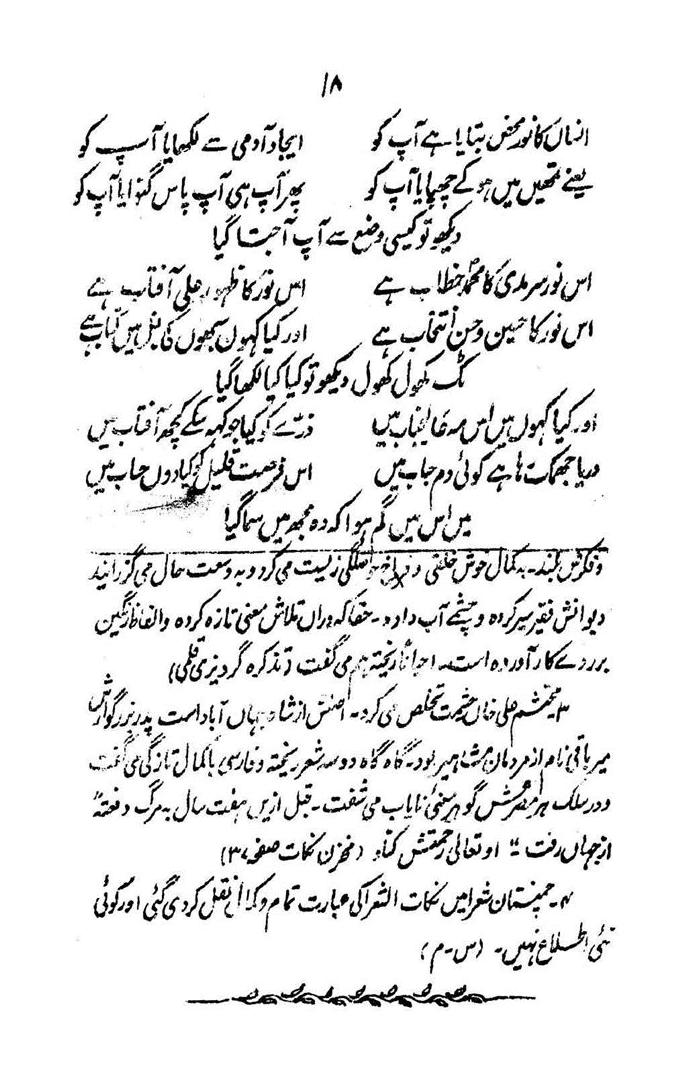 ۱۸
انساں کا نور محض بتایا ہے آپ کو ایجاد آدمی سے لکھایا آپ کو
یعنے تمھیں میں ہو کے چھپایا آپ کو پھر آپ ہی آپ پاس گنوایا آپ کو
دیکھو تو کیسی وضع سے آپ آ جتا گیا
اس نور سرمدی کا محمدؐ خطاب ہے اس نور کا ظہور علی آفتاب ہے
اس نور کا حسین و حسن انتخاب ہے اور کیا کہوں سبھوں کی میں کتاب ہے
ٹک کھول کھول دیکھو تو کیا کیا لکھا گیا
اور کیا کہوں میں اس جناب میں ذرّے کو کیا جو کہہ سکے کچھ آفتاب میں
دریا جھمکتا ہے کوئی دم حباب میں اس فرصت قلیل کو کیا دوں حساب میں
میں اس میں گم ہوا کہ وہ مجھ میں سما گیا
و فکرش بلند۔ بہ کمال خوش خلقی و فراخ حوصلگی زیست می کرد و بہ وسعت حال می گزرانید
دیوانش فقیر سیر کردہ و چشمے آب دادہ۔ حقا کہ دراں تلاش معنی تازہ کردہ و الفاظ رنگین
بر روے کار آوردہ است۔ احیاناً ریختہ ہم می گفت (تذکرہ گردیزی قلمی)
۳۔ محتشم علی خاں حشمت تخلص می کرد۔ اصلش از شاہجہاں آباد است پدر بزرگوارش
میر باقی نام از مردمان مشاہیر بود۔ گاہ گاہ دو سہ شعر ریختہ و فارسی باکمال تازگی می گفت
و در سلک ہر مصرعش گوہر معنیٔ نایاب می سفت۔ قبل ازیں ہفت سال بہ مرگ دفعتہً
از جہاں رفت "او تعالیٰ رحمتش کناد (مخزن نکات صفحہ ۳۷)
۴۔ چمنستان شعرا میں نکات الشعرا کی عبارت تمام و کمال نقل کردی گئی اور کوئی
نئی اطلاع نہیں۔ (س۔م)